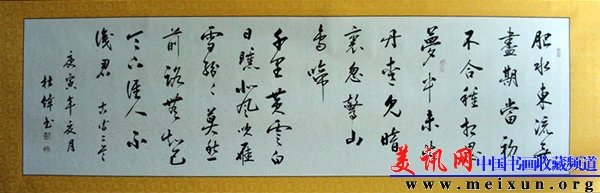 肥水東流無
盡期當初
不合種相思
夢中未比
丹青見暗
裏忽驚山
鳥啼
千里黄雲白
日曛北風吹雁
雪紛々莫愁
前路無知己
天下誰人不
識君 古诗二首
庚寅年夏月
杜偉书
美讯网 中国书画收藏频道
www.meixun.org